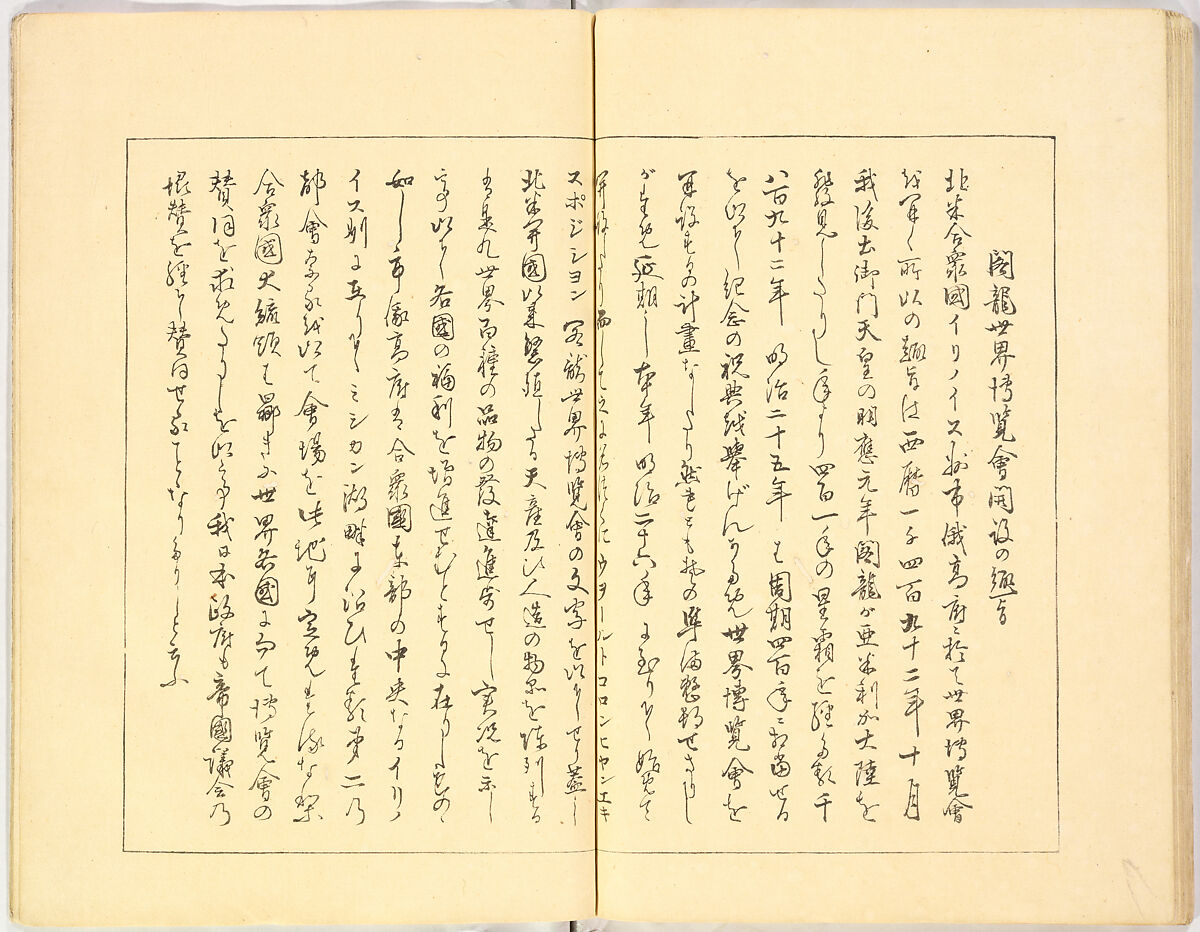 閣龍世界博覧會開設の趣旨
北米合衆國イリノイス州市俄高府ニ於て世界博覧會
を開く所以の趣旨は西暦一千四百九十二年十月
我後土御門天皇の明應元年閣龍が亜米利加大陸を
發見したりし年より四百一年の星霜を經る一千
八百九十二年 明治二十五年 は周期四百年ニ相當せる
を以て紀念の祝典を擧げんが為め世界博覧會を
開設するの計畫なしたり然れとも其の準備整頓せさりし
がため延期し本年 明治二十六年 に至りて始めて
開設したり而して之に名つくにウヲールトコロンヒヤンエキ
スポジシヨン 閣龍世界博覧會の文字を以てせり蓋し
北米開國以来繁殖したる天産及ひ人造の物品を陳列する
は是れ世界百種の品物の發達進歩せし実况を示し
以て各國の福利を増進せむとするに在りしものゝ
如し市俄高府は合衆國東部の中央なるイリノ
イス州に在りてミシカン湖畔に沿ひ第二の
都會なるを以て會場を此地に定め
合衆國大統領は普きふ世界各國に向て博覧會の
賛同を求めたりしを以て我日本政府も帝國議会乃
協賛を經て賛同せることとなりたりしと云ふ